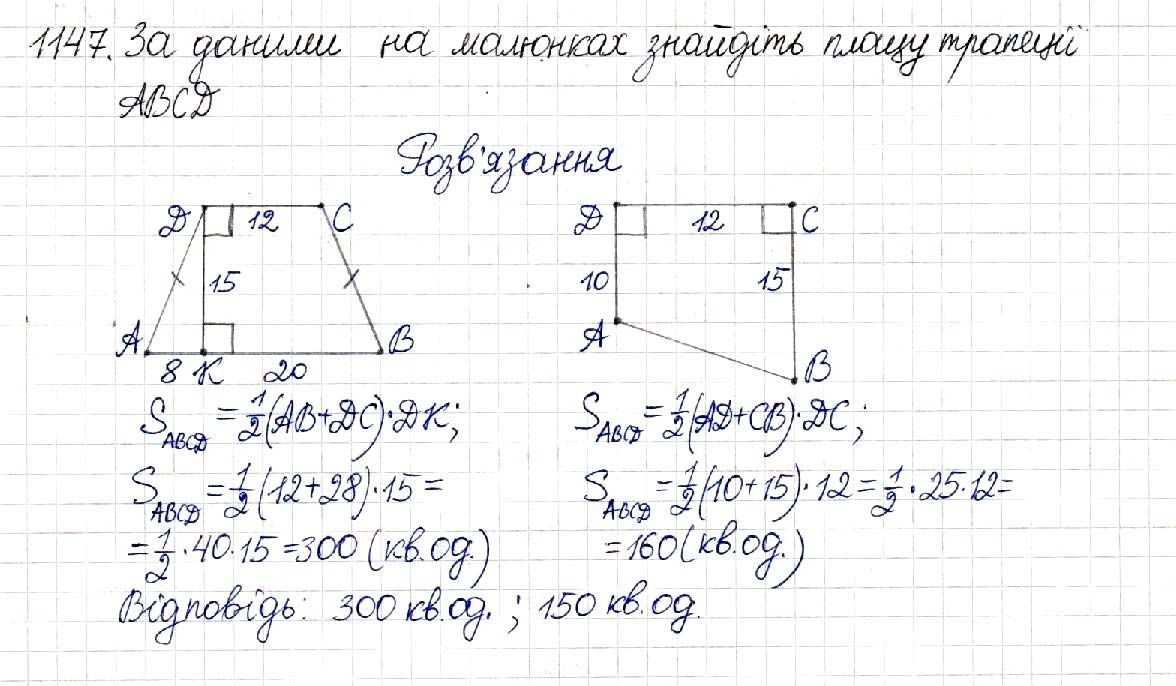 1147. За даними на малюнках знайдіть площу трапеції
ABCD
Розв'язання
D 12 C
15
A B
8 K 20
D 12 C
10 15
A
B
S_ABCD = 1/2(AB+DC)·DK;
S_ABCD = 1/2(12+28)·15 =
= 1/2·40·15 = 300 (кв.од.)
S_ABCD = 1/2(AD+CB)·DC;
S_ABCD = 1/2(10+15)·12 = 1/2·25·12 =
= 160 (кв.од.)
Відповідь: 300 кв.од. ; 150 кв.од.